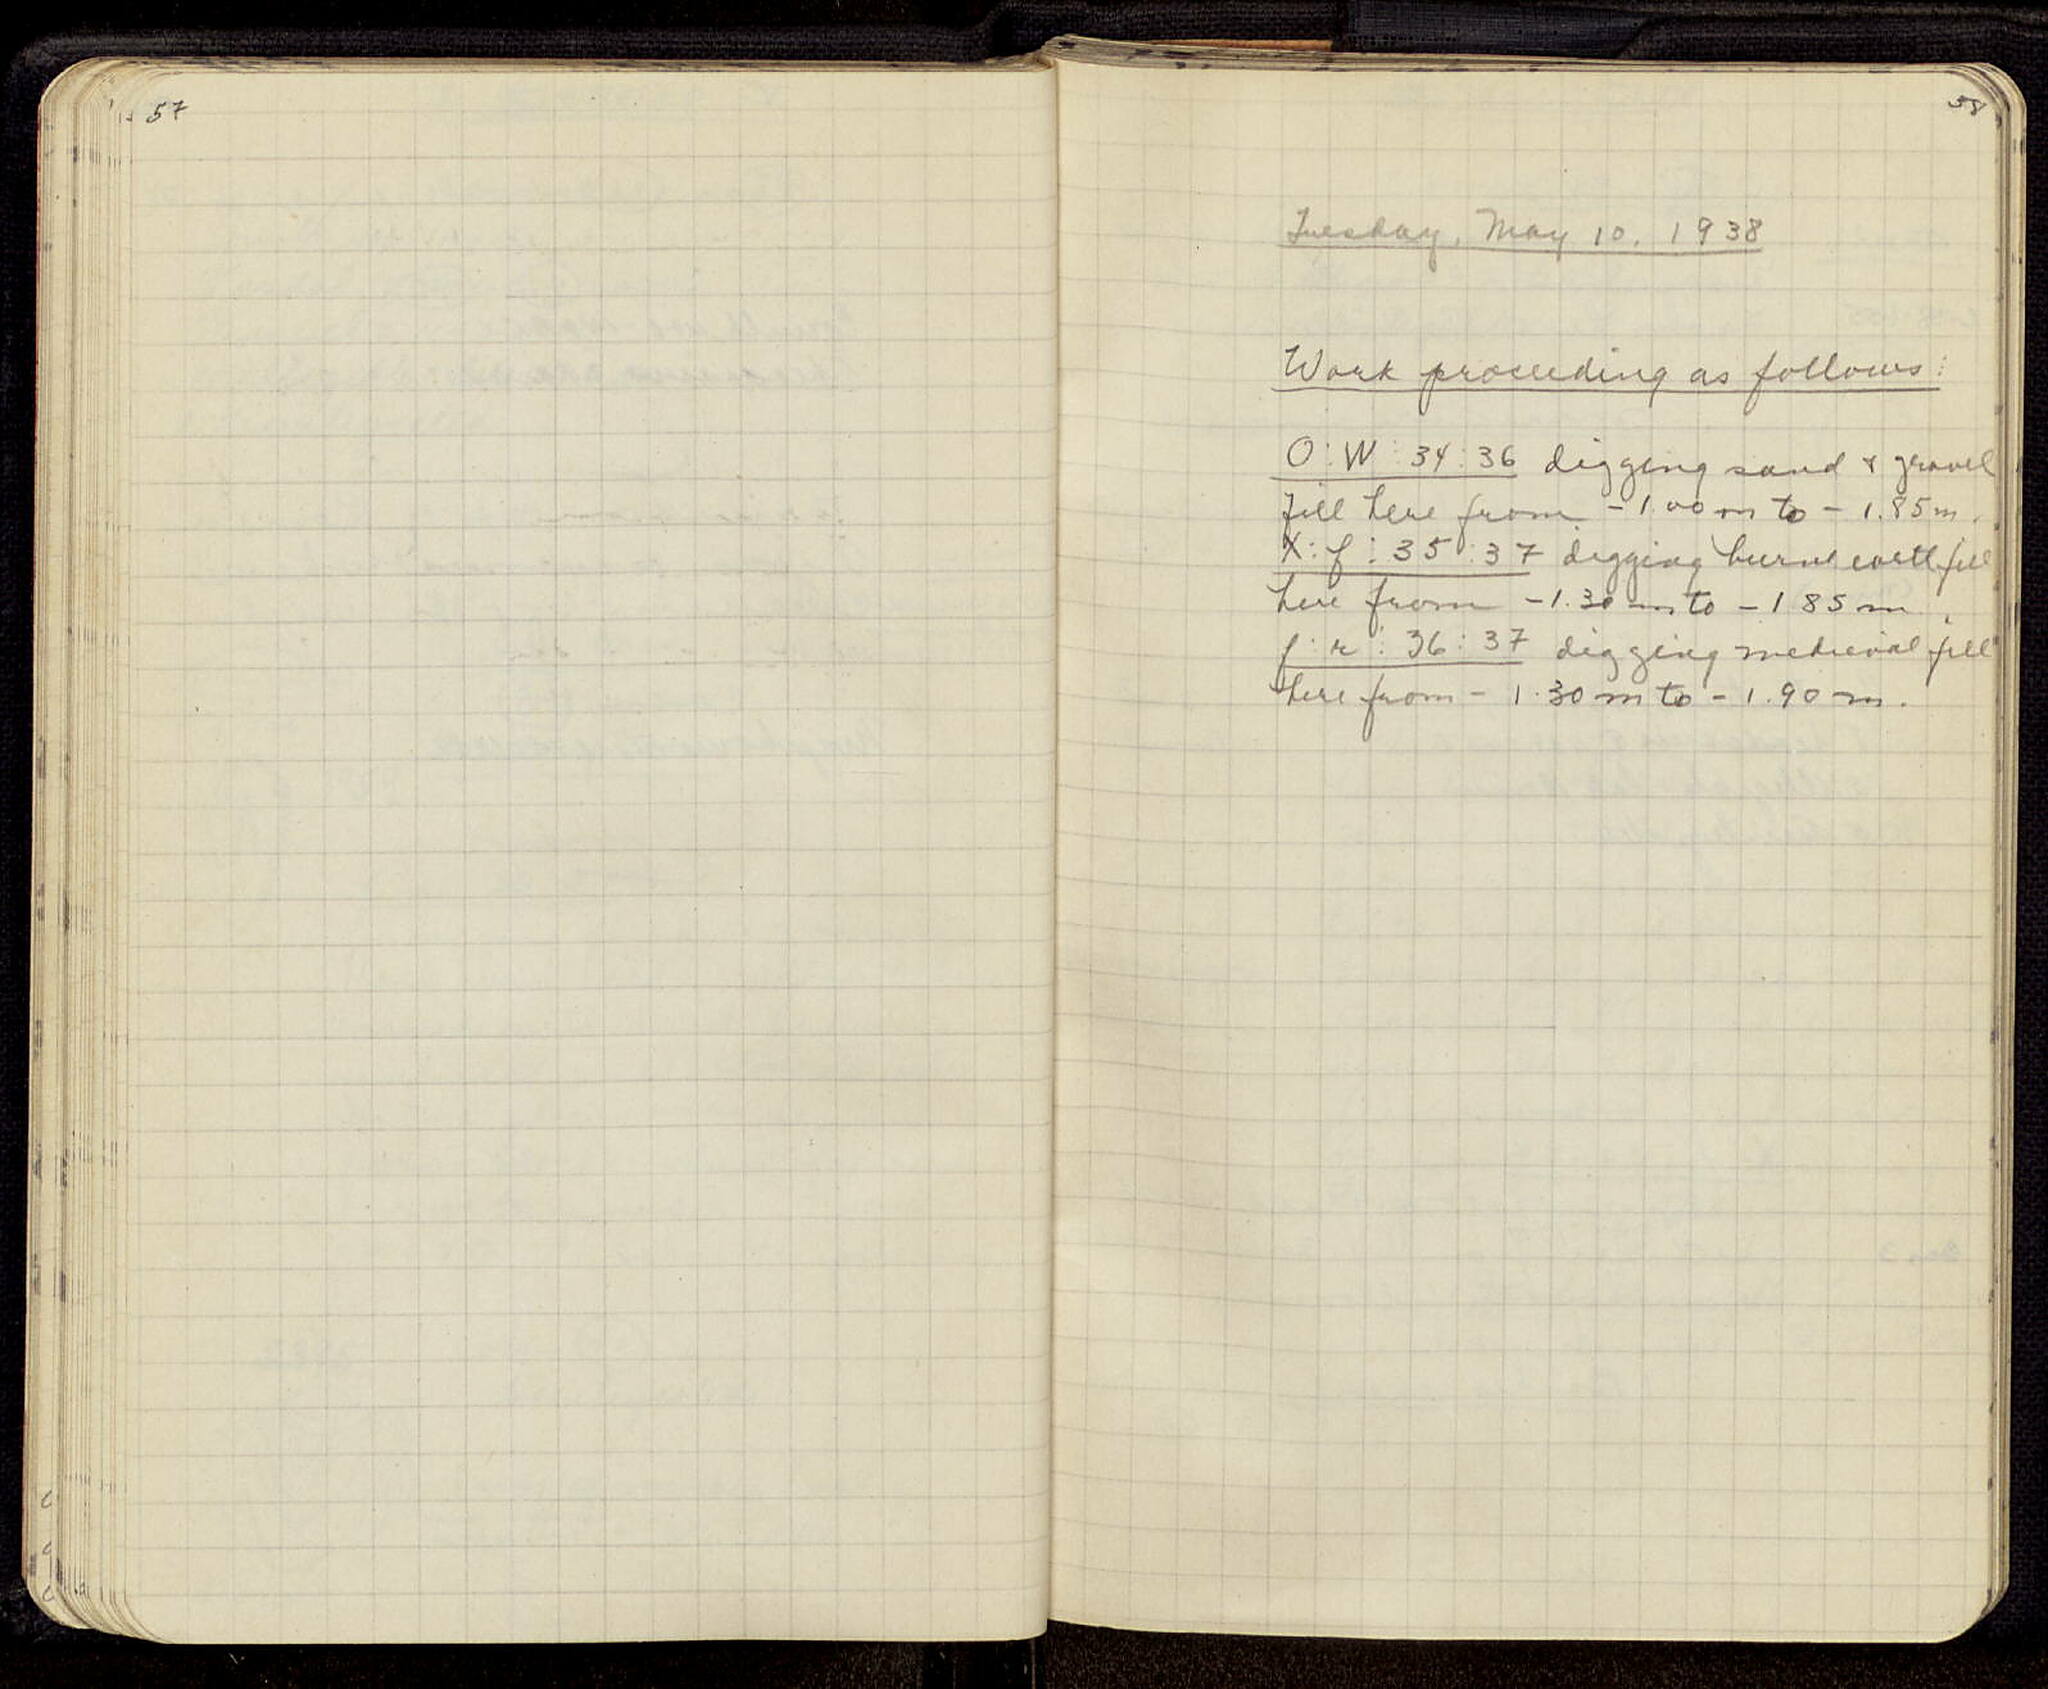 57
58
Tuesday, May 10, 1938
Work proceeding as follows:
O:W:34:36 digging sand & gravel
fill here from -1.00m to -1.85m.
X:f:35:37 digging burnt earth fill
here from -1.30m to -1 85 m.
f:r:36:37 digging medieval fill
here from -1.30m to -1.90m.